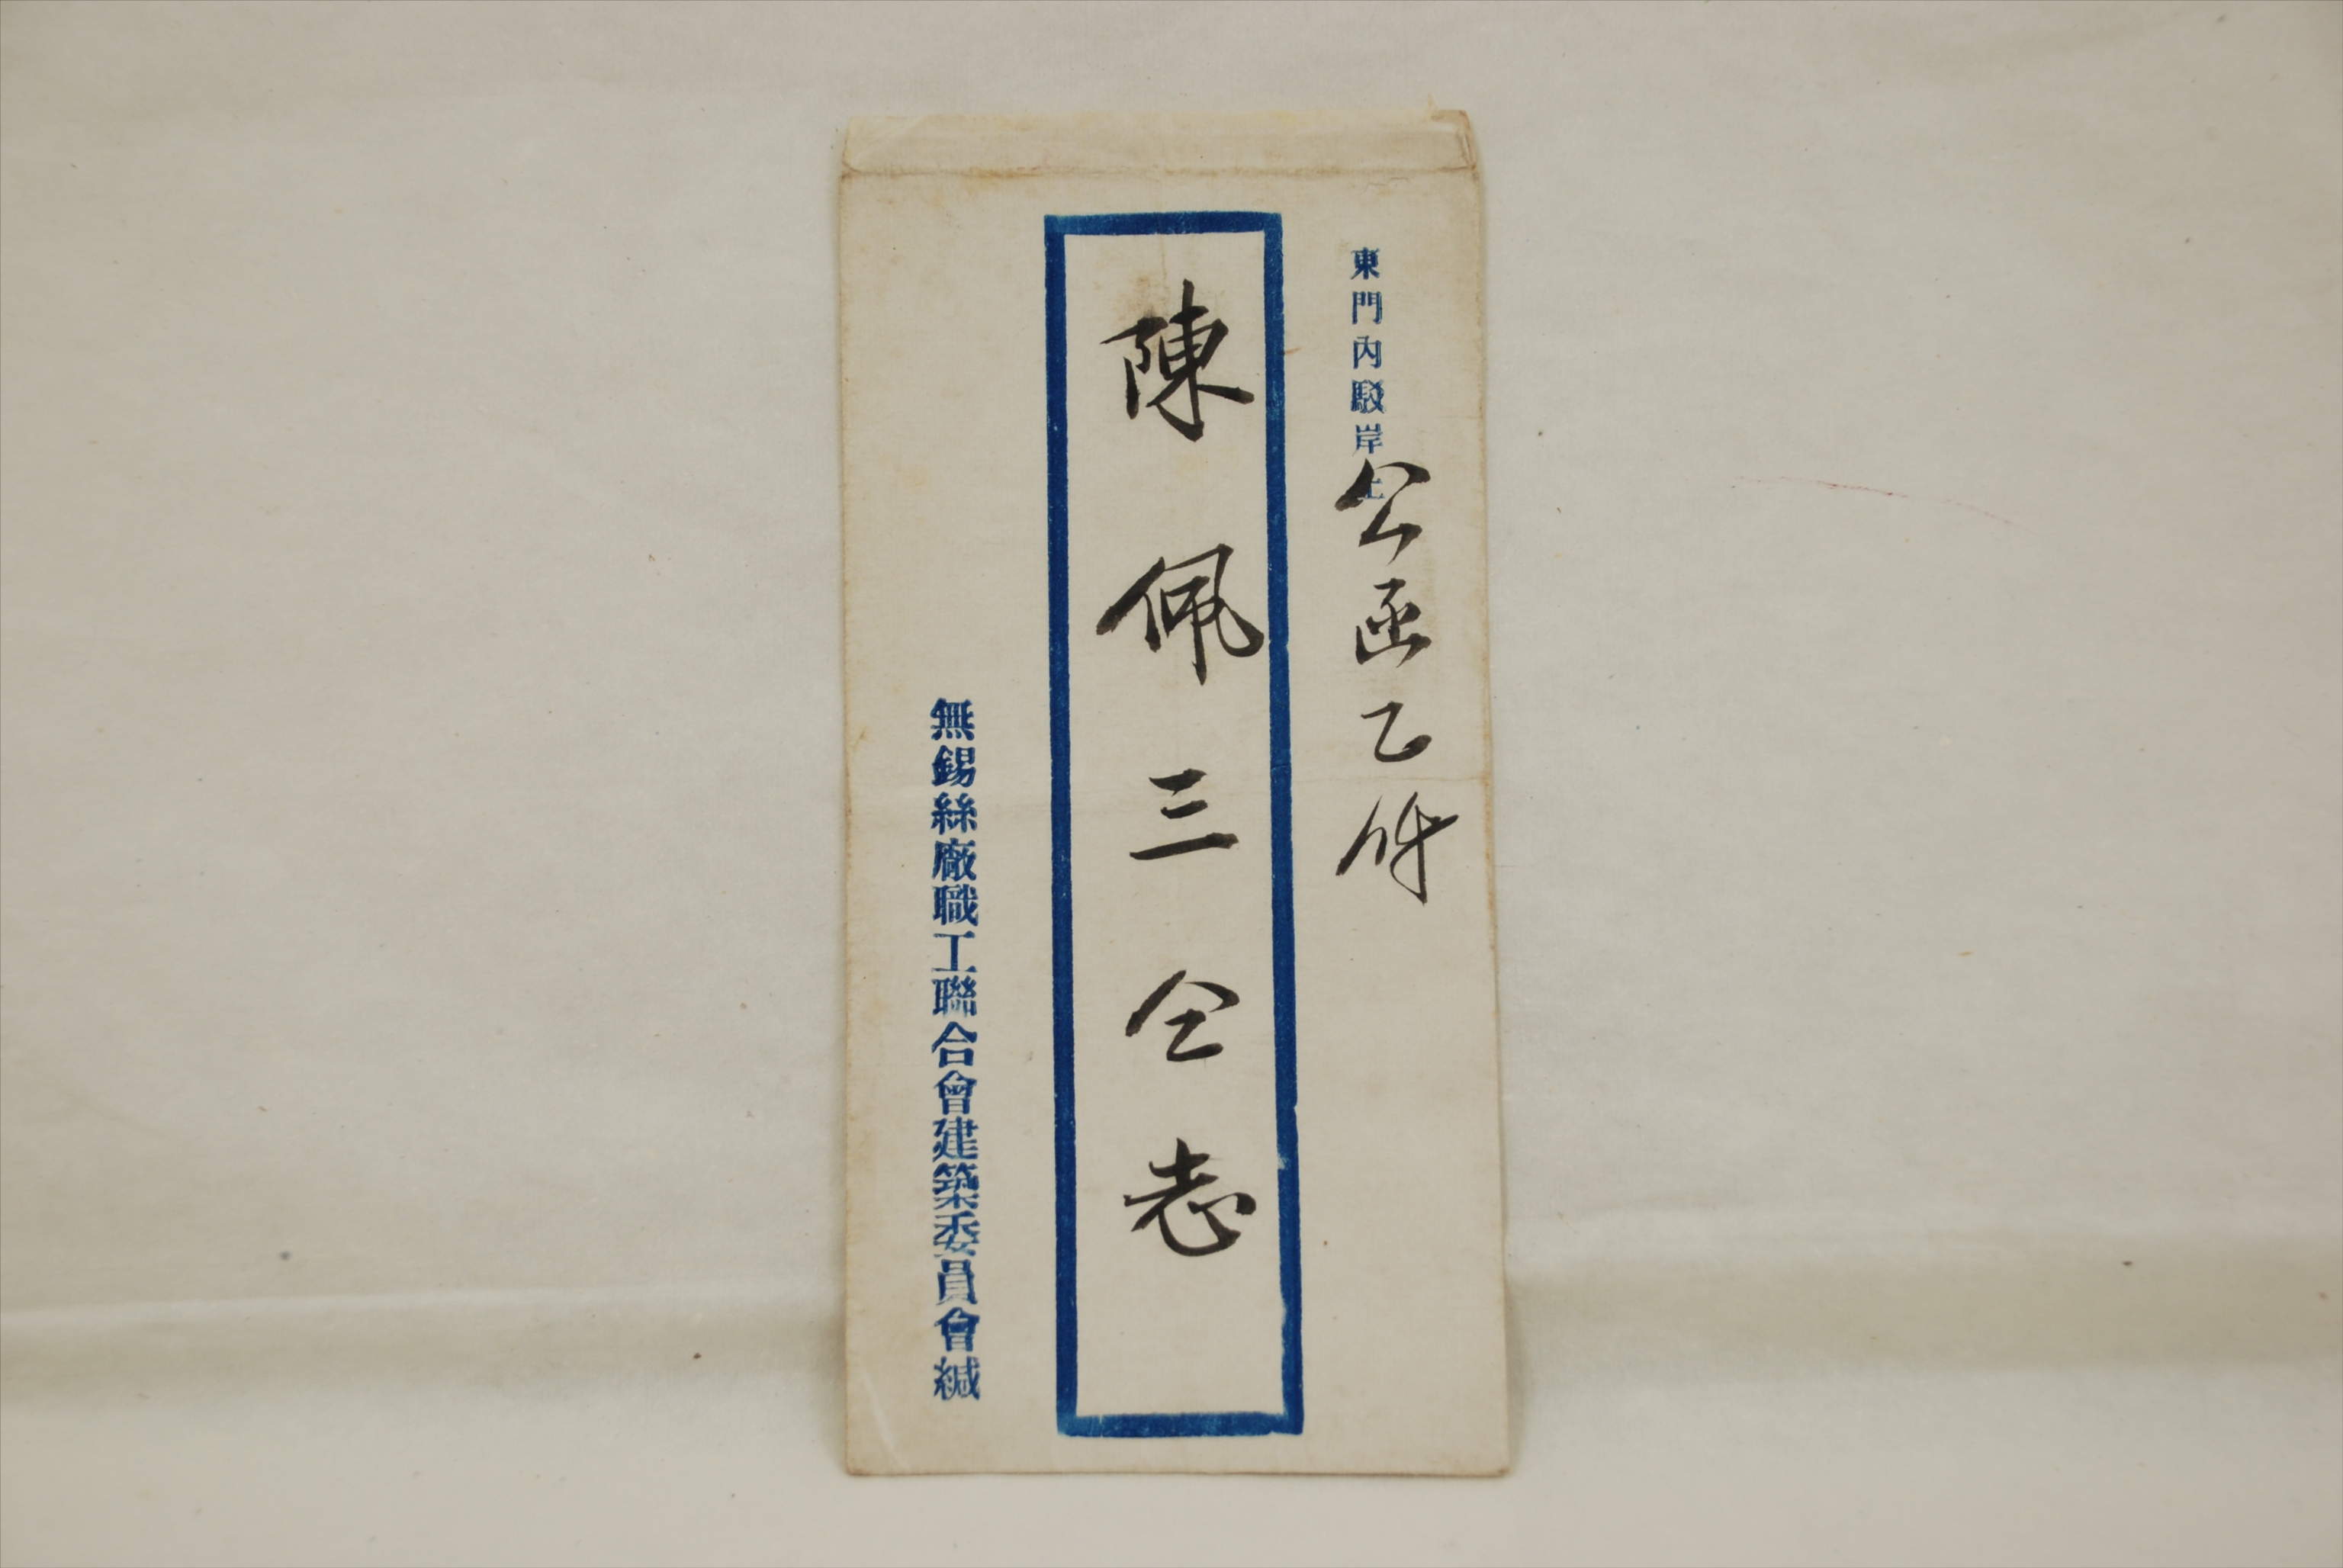 東門內駁岸上
公函乙件
陳佩三仝志
無錫絲廠職工聯合會建築委員會緘